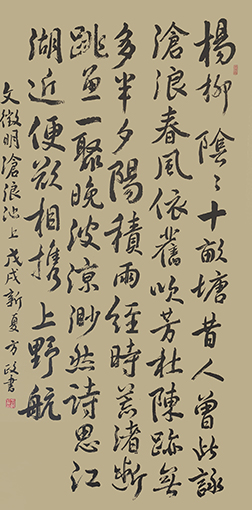 楊柳陰〻十畝塘昔人曾此詠
滄浪春風依舊吹芳杜陳跡無
多半夕陽積雨經時荒渚斷
跳魚一聚晚波涼渺然詩思江
湖近便欲相携上野航
文徵明滄浪池上 戊戌新夏方政書